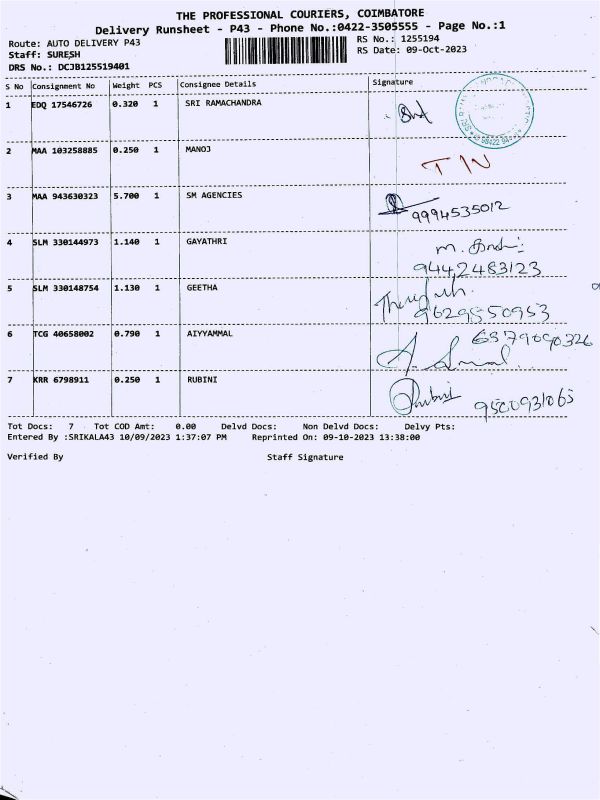 THE PROFESSIONAL COURIERS, COIMBATORE
Delivery Runsheet - P43 - Phone No.:0422-3505555 - Page No.:1
Route: AUTO DELIVERY P43 RS No.: 1255194
Staff: SURESH RS Date: 09-Oct-2023
DRS No.: DCJB125519401
S No Consignment No Weight PCS Consignee Details Signature
1 EDQ 17546726 0.320 1 SRI RAMACHANDRA
2 MAA 103258885 0.250 1 MANOJ TIN
3 MAA 943630323 5.700 1 SM AGENCIES 9994535012
4 SLM 330144973 1.140 1 GAYATHRI
9442483123
5 SLM 330148754 1.130 1 GEETHA
9629550953
6 TCG 40658002 0.790 1 AIYYAMMAL 6379090326
7 KRR 6798911 0.250 1 RUBINI Rubini 9500931065
Tot Docs: 7 Tot COD Amt: 0.00 Delvd Docs: Non Delvd Docs: Delvy Pts:
Entered By :SRIKALA43 10/09/2023 1:37:07 PM Reprinted On: 09-10-2023 13:38:00
Verified By Staff Signature